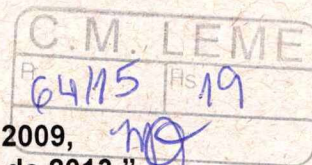 C.M. LEME
P 64/15 Fls 19
2009,